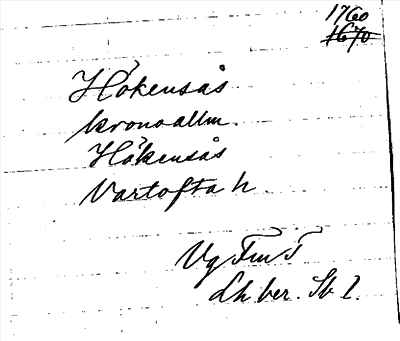 1760
1670
Hökensås
kronoallm.
Hökensås
Vartofta h
Vg Fm T
Lh ber. Sb 1.